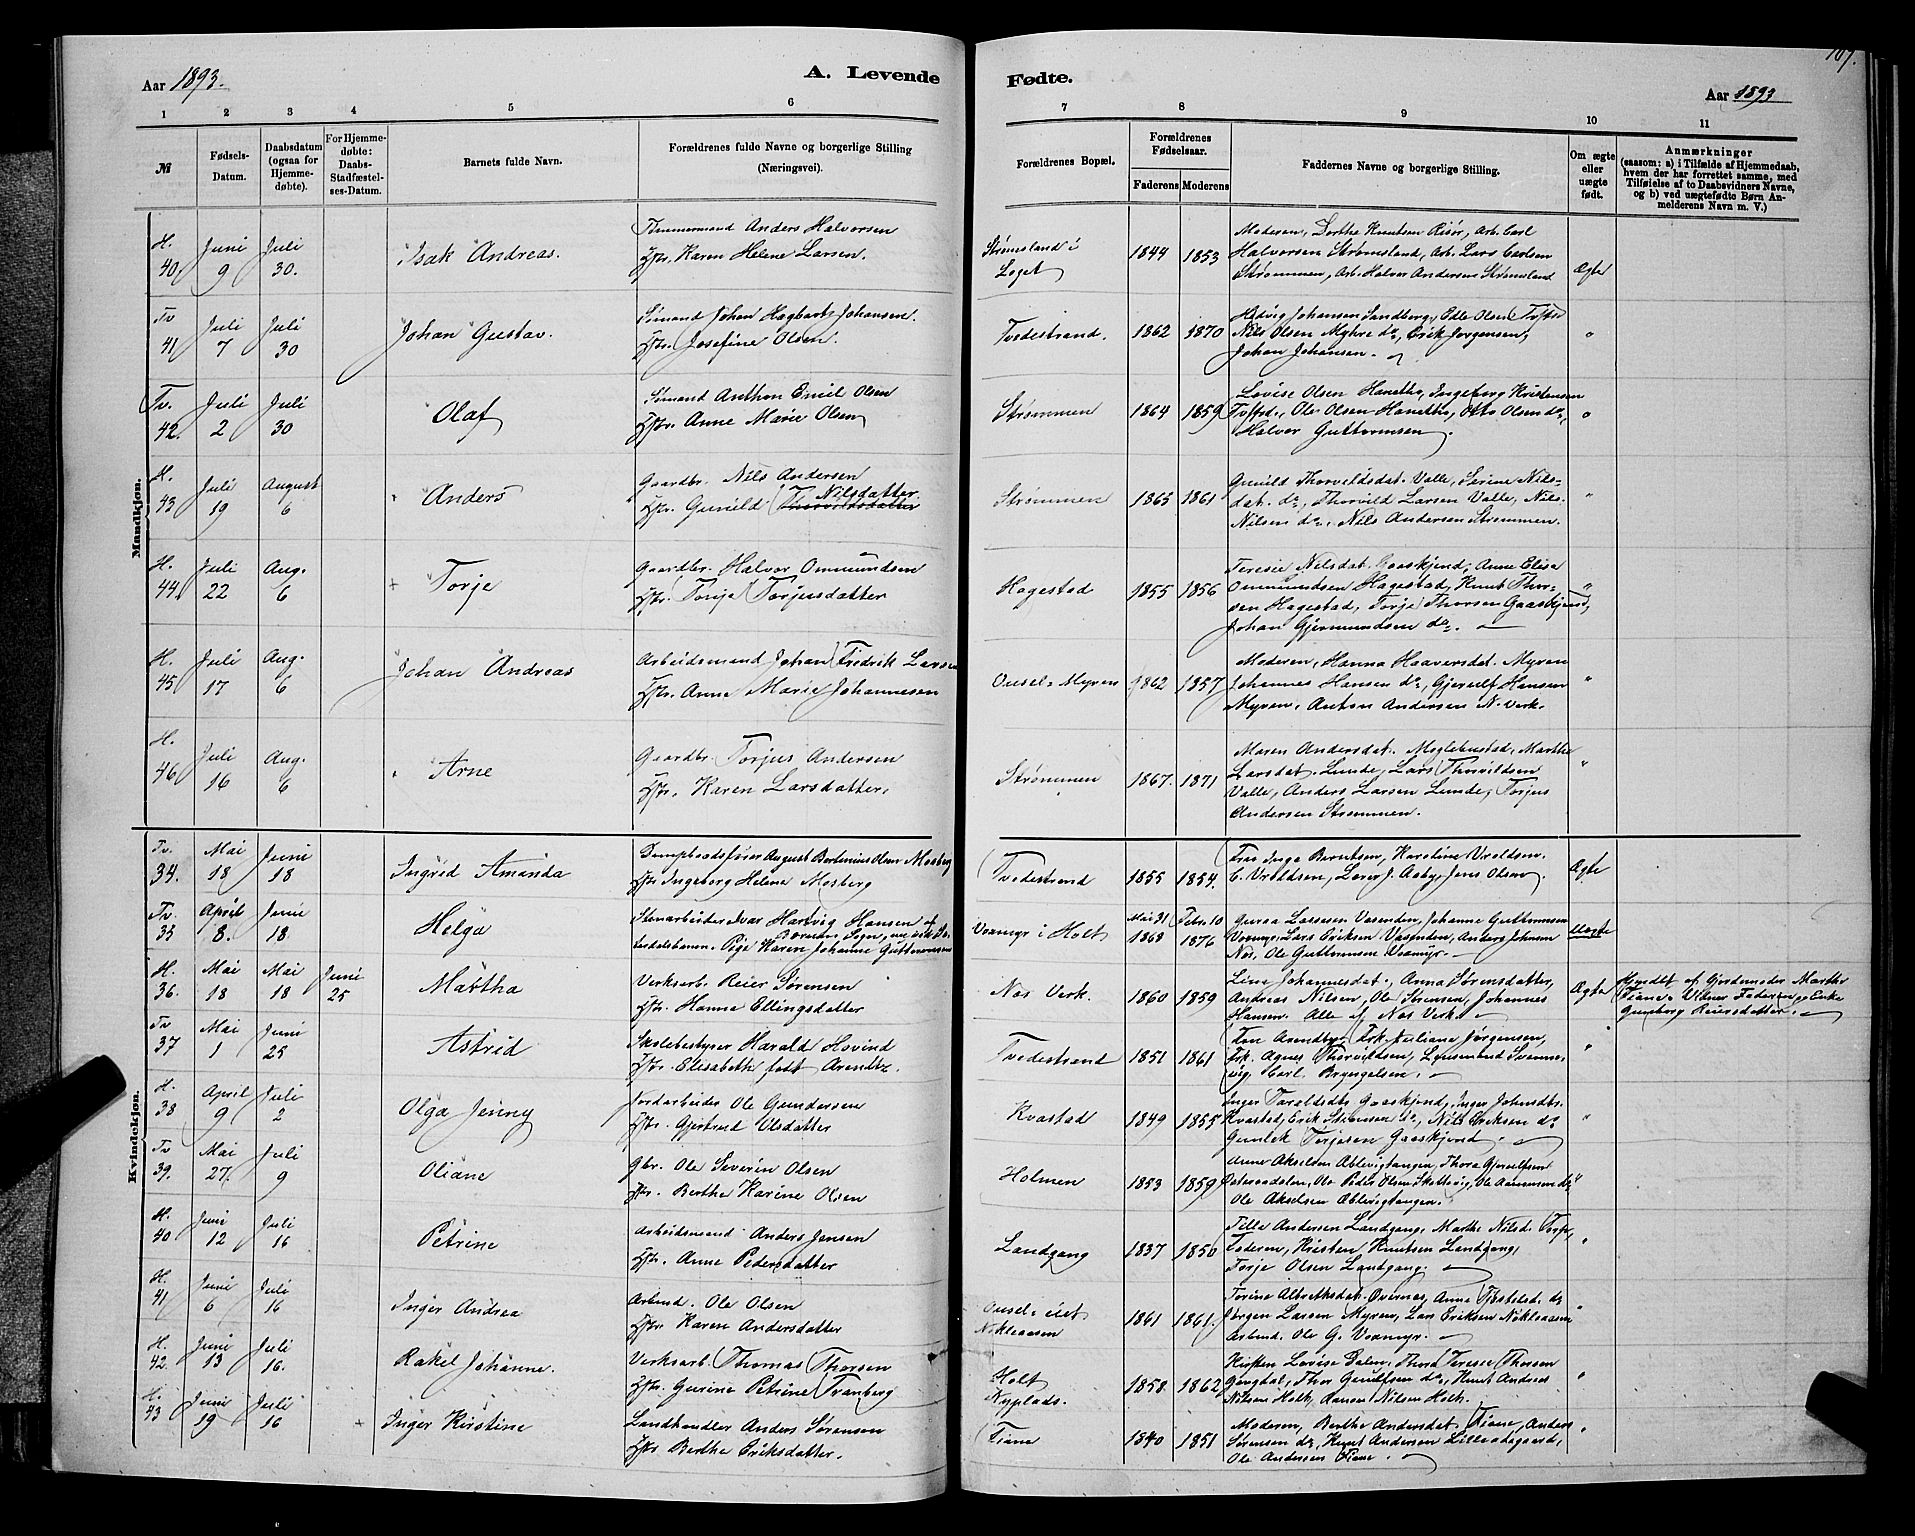 Aar 1893.
A. Levende
Fødte.
107.
Aar 1893
1 2 3 4 5 6
7 8 9 10 11
№
Fødsels-Datum.
Daabsdatum (ogsaa for Hjemmedøbte).
For Hjemmedøbte: Daabs-Stadfæstelses-Datum.
Barnets fulde Navn.
Forældrenes fulde Navne og borgerlige Stilling (Næringsvei).
Forældrenes Bopæl.
Forældrenes Fødselsaar.
Faderens Moderens
Faddernes Navne og borgerlige Stilling.
Om ægte eller uægte født.
Anmærkninger
(saasom: a) i Tilfælde af Hjemmedaab, hvem der har forrettet samme, med Tilføielse af to Daabsvidners Navne, og b) ved uægtefødte Børn Anmelderens Navn m. V.)
Mandkjøn.
H. 40. Juni 9 Juli 30. Isak Andreas.
Tømmermand Anders Halvorsen
Hstr. Karen Helene Larsen.
Strømsland i Loget
1844 1853
Moderen, Dorthe Knutsen Risør, Arb. Carl
Halvorsen Strømsland, Arb. Lars Carlsen
Strømmen, Arb. Halvor Andersen Strømsland
Ægte
Tv 41 Juli 7 Juli 30 Johan Gustav.
Sømand Johan Hagbart Johansen
Hstr. Josefine Olsen.
Tvedestrand.
1862 1870
Hedvig Johansen Sandberg, Odle Olsen
Nils Olsen Myhre do, Erik Jørgensen,
Johan Johansen.
"
Tv. 42. Juli 2 Juli 30 Olaf
Sømand Anthon Emil Olsen
Hstr. Anne Marie Olsen
Strømmen
1864 1859
Lovise Olsen Hanetho, Ingeborg Kristensen
Tvstrd., Ole Olsen Hanetho, Otto Olsen do,
Halvor Guttormsen.
"
H. 43 Juli 19 August 6 Anders
Gaardbr. Nils Andersen
Nilsdatter
Hstr. Gunild Thorvildsdatter
Strømmen
1865 1861
Gunild Thorvildsdat. Valle, Serine Nils-
dat. do, Thorvild Larsen Valle, Nils
Nilsen do, Nils Andersen Strømmen.
"
H. 44. Juli 22 Aug. 6 Torje
Gaardbr. Halvor Ommundsen
Hstr. Torje Torjusdatter
Hagestad
1855 1856
Teresie Nilsdat. Gaaskjend, Anne Elise
Ommundsen Hagestad, Knut Thor-
sen Hagestad, Torje Thorsen Gaaskjend,
Johan Gjermundsen do.
"
H. 45 Juli 17 Aug. 6 Johan Andreas
Arbeidsmand Johan Fredrik Larsen
Hstr. Anne Marie Johannesen
Ousel. Myren
1862 1857
Moderen, Hanna Haaversdat. Myren
Johannes Hansen do, Gjerulf Hansen
Myren, Anton Andersen N. Verk.
"
H. 46 Juli 16 Aug. 6 Arne
Gaardbr. Torjus Andersen
Hstr. Karen Larsdatter.
Strømmen
1867. 1871
Maren Andersdat. Moglebustad, Marthe
Larsdat. Lunde, Lars Thorvildsen
Valle, Anders Larsen Lunde, Torjus
Andersen Strømmen.
"
Kvindekjøn.
Tv. 34. Mai 18 Juni 18 Ingrid Amanda
Dampbaadsfører August Bertinius Olsen Mosberg
Hstr. Ingeborg Helene Mosberg
Tvedestrand
1855 1854.
Fru Inga Berntsen, Karoline Vroldsen.
C. Vroldsen, Lærer J. Aaby, Jens Olsen
Ægte
Tv. 35 April 8. Juni 18. Helga
Stenarbeider Ivar Hartvig Hansen af
Pige Karen Johanne Guttormsen
Voamyr i Holt
Mai 31 1868 Febr. 10 1876
Guroa Larssen Vasenden, Johanne Guttormsen
Voamyr, Lars Eriksen Vasenden, Anders Johnsen
Nes, Ole Guttormsen Voamyr.
Uægte
H. 36. Mai 18 Mai 18 Juni 25 Martha
Verksarb. Reier Sørensen
Hstr. Hanna Ellingsdatter
Nes Verk.
1860 1859
Line Johannesdat., Anna Sørensdatter,
Andreas Nilsen, Ole Sørensen, Johannes
Hansen. Alle af Nes Verk.
Ægte
Hjmdbt af Gjordmoder Marthe
Fiane. Vidner Faderen og Enke
Gunborg Reiersdatter.
Tv. 37 Mai 1 Juni 25 Astrid
Skolebestyrer Harald Hovind
Hstr. Elisabeth født Arendtz
Tvedestrand
1851 1861
Frk. Juliane Jørgensen,
Frk. Agnes Thorvildsen,
Carl Bryngelsen.
"
H. 38 April 9 Juli 2 Olga Jenny
Jordarbeider Ole Gundersen
Hstr. Gjertrud Olsdatter
Kvastad
1849 1855
Inger Taraldsdtr. Gaaskjend, Inger Johnsdtr.
Kvastad, Erik Sørensen do, Nils Eriksen do
Gunlek Torjesen Gaaskjend.
"
Tv 39. Mai 27. Juli 9 Oliane
Gbr. Ole Severin Olsen
Hstr. Berthe Karine Olsen
Holmen
1853 1859
Anne Akselsen Ablevigtangen, Thora Gjerulfsen
Ole Peder Olsen Skattevig, Ole Aanonsen do,
Ole Akselsen Ablevigtangen.
"
H. 40 Juni 12 Juli 16 Petrine
Arbeidsmand Anders Jensen
Hstr. Anne Pedersdatter
Landgang
1837 1850
Tille Andersen Landgang, Marthe Nilsd.
Faderen, Kristen Knutsen Landgang,
Torje Olsen Landgang.
"
H. 41 Juni 6 Juli 16 Inger Andrea
Arbmd. Ole Olsen
Hstr. Karen Andersdatter
Ousel. eiet Nøkleaasen
1861 1861.
Torine Albretsdat. Øvernes, Anne do
Jørgen Larsen Myren, Lars Eriksen Nøkleaasen
Arbmd. Ole G. Voamyr.
"
H. 42. Juni 13 Juli 16. Rakel Johanne.
Verksarb. Thomas Thorsen
Hstr. Gurine Petrine Tranberg
Holt Nyplads.
1858. 1862
Kirsten Lovise Dalen, Teresie Thorsen
Thor Gunulfsen do, Knut Andreas
Nilsen Holt, Hans Nilsen Holt.
"
H. 43 Juni 19 Juli 16 Inger Kirstine
Landhandler Anders Sørensen
Hstr Berthe Eriksdatter.
Fiane
1840 1851
Moderen, Berthe Andersdat. Fiane, Anders
Sørensen do, Knut Andersen Lilleødegaard,
Ole Andersen Fiane.
"